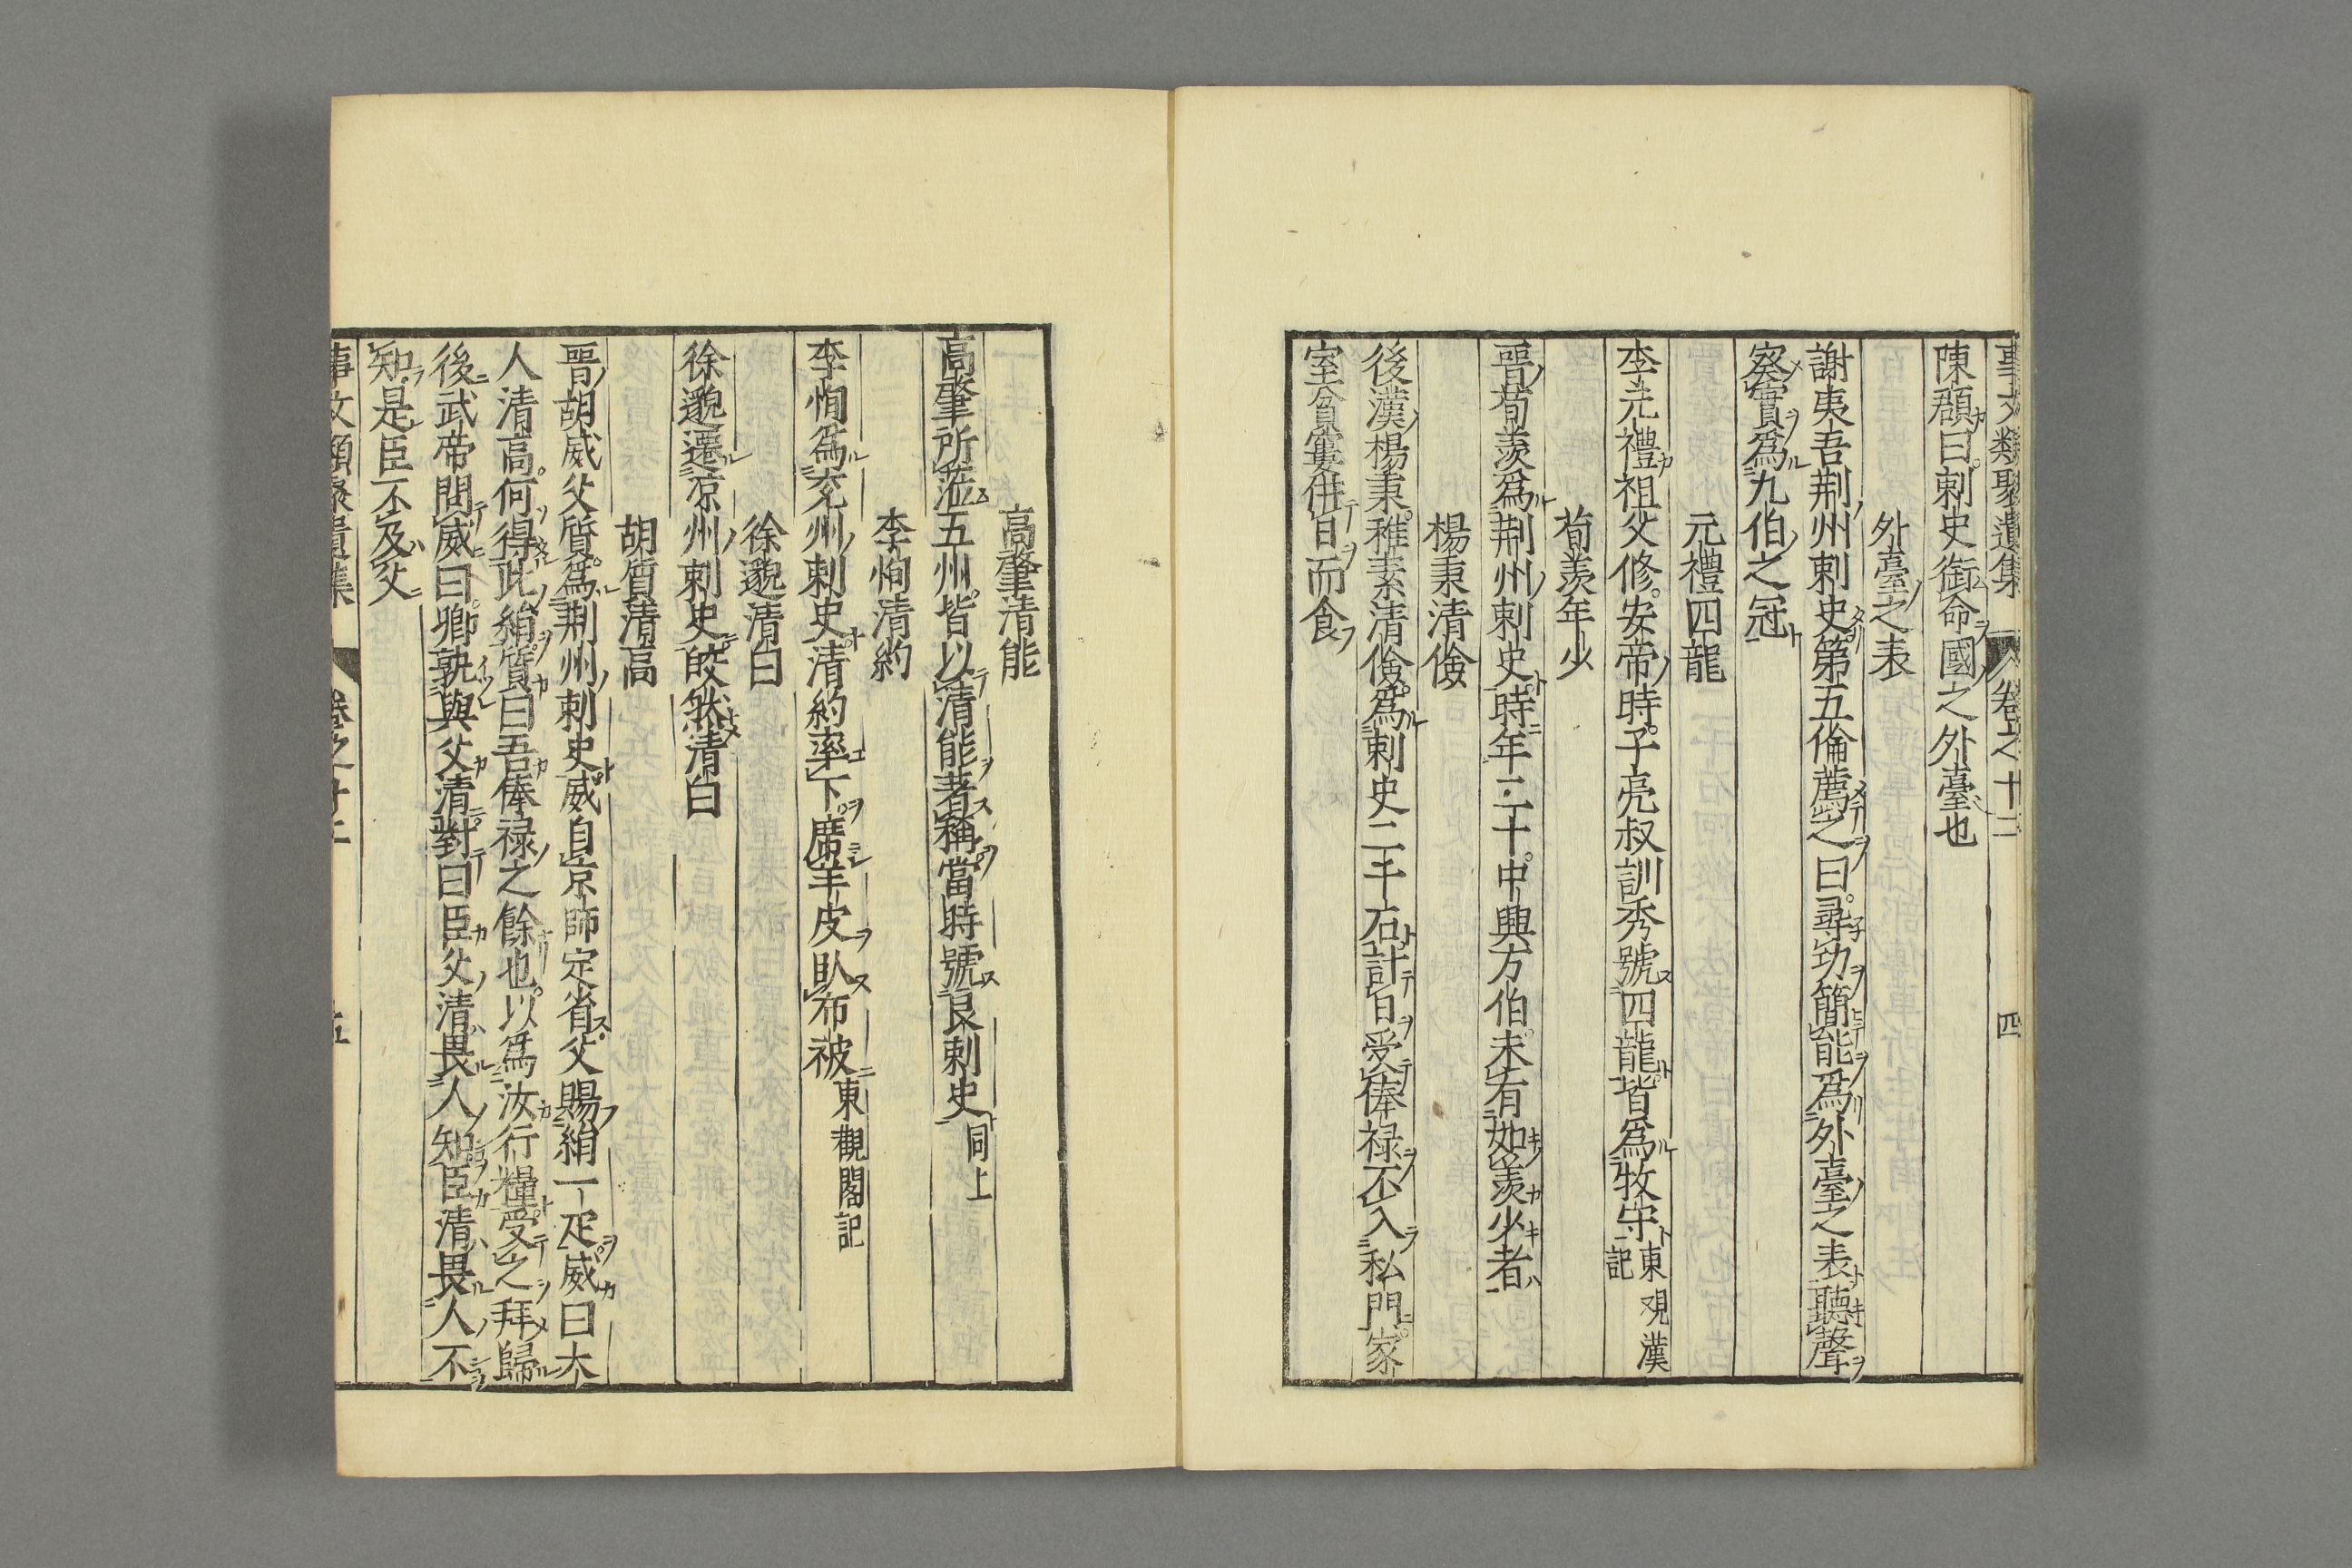 事文類聚遺集 卷之十二 四
陳頵曰刺史銜命國之外臺也
外臺之表
謝夷吾荆州刺史第五倫薦之曰尋功簡能爲外臺之表聽聲
察實爲九伯之冠
元禮四龍
李元禮祖父修安帝時子亮叔訓秀號四龍皆爲牧守東觀漢記
荀羨年少
晋荀羨爲荆州刺史時年二十中興方伯未有如羨少者
楊秉清儉
後漢楊秉稚素清儉爲刺史二千石計日受俸禄不入私門家
室貧寠併日而食
高肇清能
高肇所蒞五州皆以清能著稱當時號良刺史同上
李恂清約
李恂爲兖州刺史清約率下廣羊皮臥布被東觀閣記
徐邈清白
徐邈遷涼州刺史皎然清白
胡質清高
晋胡威父質爲荆州刺史威自京師定省父賜絹一疋威曰大
人清高何得此絹質曰吾俸禄之餘也以爲汝行糧受之拜歸
後武帝問威曰卿孰與父清對曰臣父清畏人知臣清畏人不
知是臣不及父
事文類聚遺集 卷之十二 五